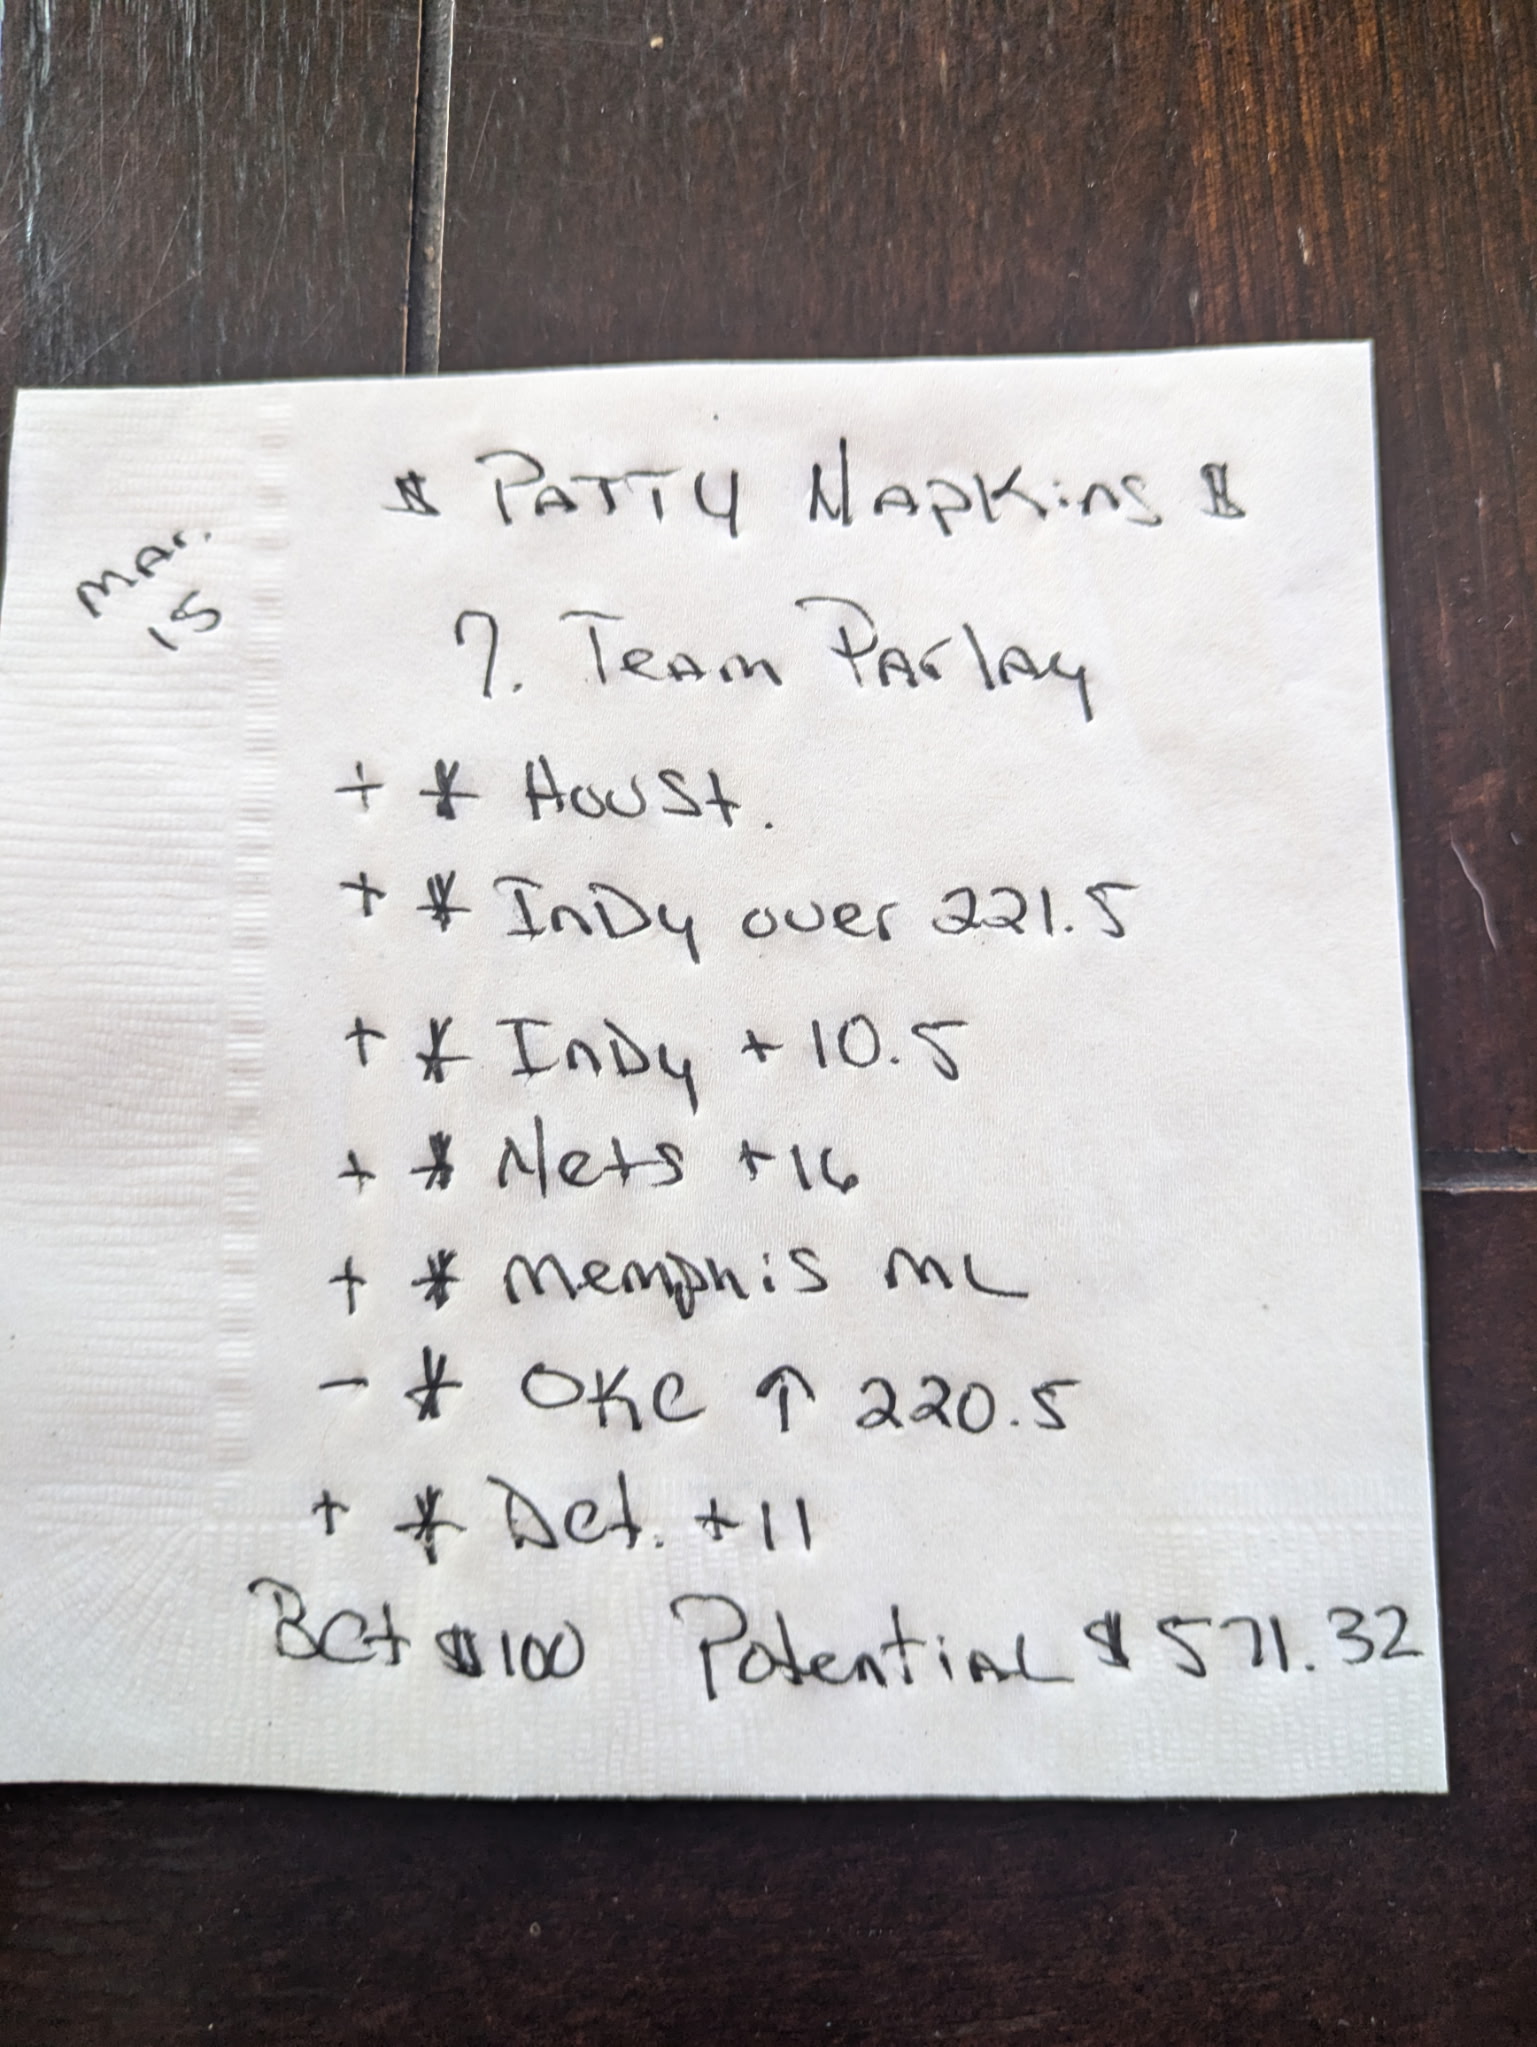 $ PATTY NAPKins $
Mar.
15
7. Team Parlay
+ * Houst.
+ * InDy over 221.5
+ * InDy + 10.5
+ * Nets +16
+ * Memphis ML
- * OKC ↑ 220.5
+ * Det. +11
Bet $100 Potential $571.32